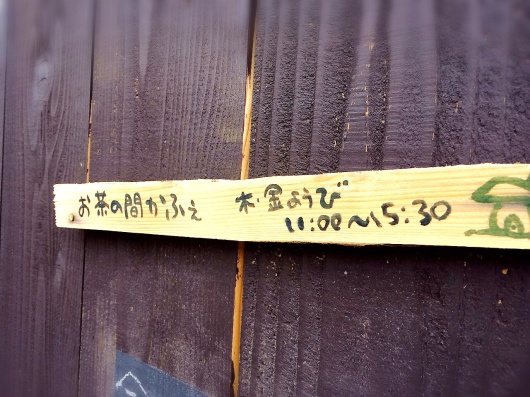 お茶の間かふぇ 木・金ようび
11:00〜15:30